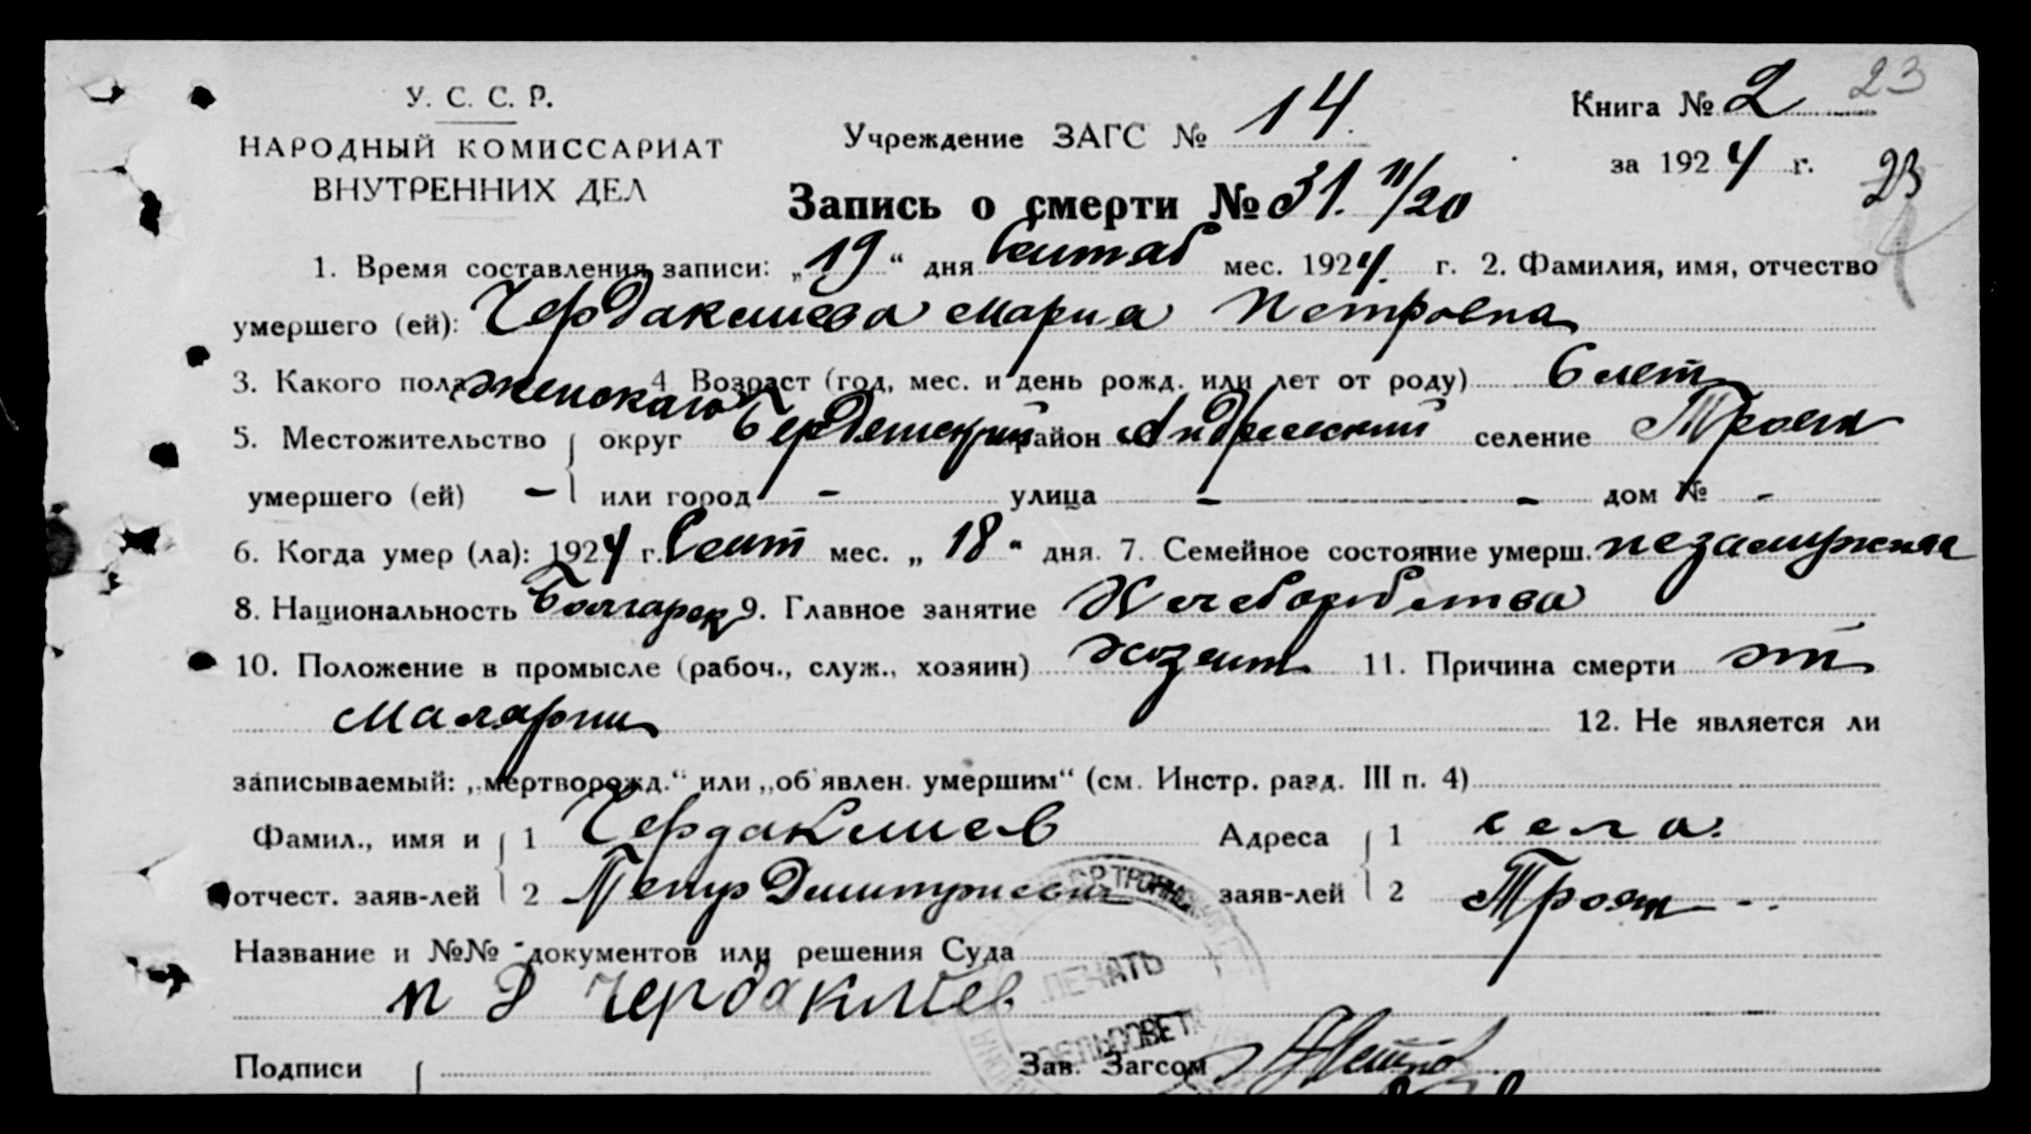 У. С. С. Р.
НАРОДНЫЙ КОМИССАРИАТ
ВНУТРЕННИХ ДЕЛ
Учреждение ЗАГС № 14
Книга № 2 23
за 1924 г. 23
Запись о смерти № 31. 11/20
1. Время составления записи: „19“ дня Сентяб мес. 1924 г. 2. Фамилия, имя, отчество
умершего (ей): Чердаклиева Мария Петровна
3. Какого пола женскаго 4 Возраст (год, мес. и день рожд. или лет от роду) 6 лет
5. Местожительство округ Бердянский район Андреевский селение Трояны
умершего (ей) - или город - улица - - дом № -
6. Когда умер (ла): 1924 г. Сент мес. „18“ дня. 7. Семейное состояние умерш. незамужняя
8. Национальность Болгарск 9. Главное занятие Хлеборобства
10. Положение в промысле (рабоч., служ., хозяин) 11. Причина смерти от
Малярии 12. Не является ли
записываемый: „мертворожд.“ или „об'явлен. умершим“ (см. Инстр. разд. III п. 4)
Фамил., имя и 1 Чердаклиев Адреса 1 села
отчест. заяв-лей 2 Петр Дмитриевич заяв-лей 2 Троян
Название и №№ документов или решения Суда
П Д Чердаклиев
ПЕЧАТЬ
СЕЛЬСОВЕТА
Подписи Зав. Загсом